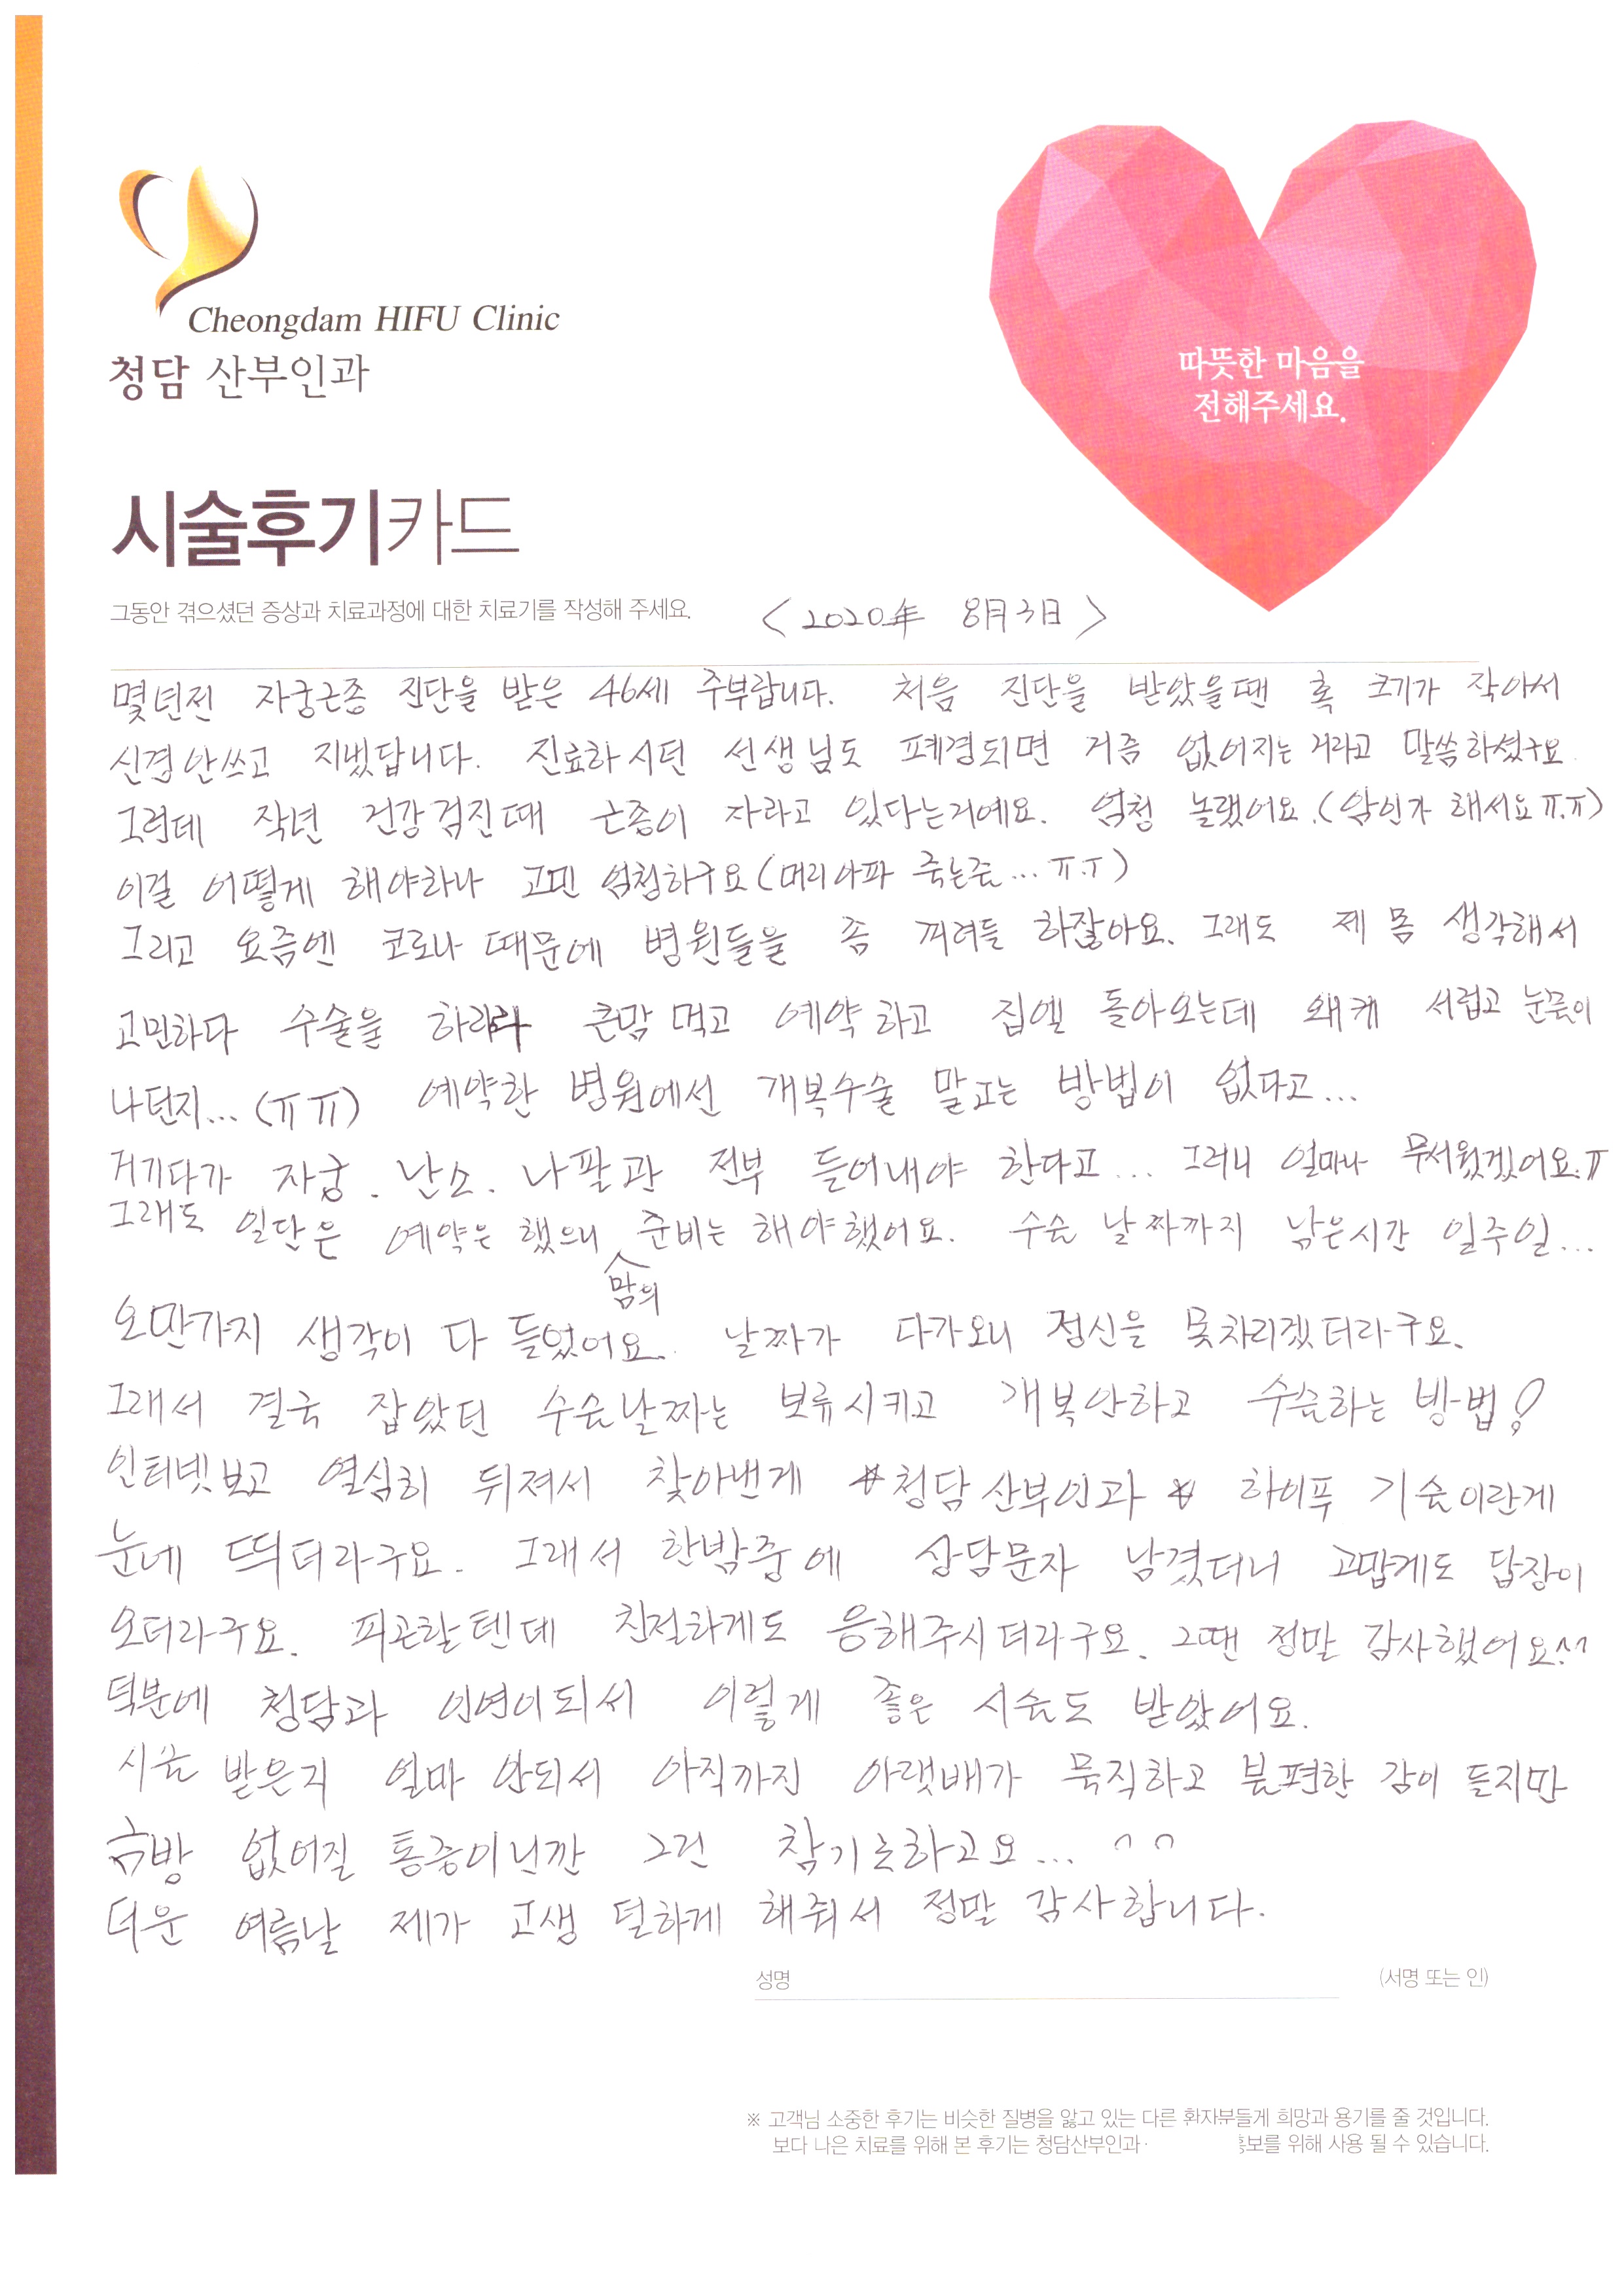 Cheongdam HIFU Clinic
청담 산부인과
따뜻한 마음을
전해주세요.
시술후기카드
그동안 겪으셨던 증상과 치료과정에 대한 치료기를 작성해 주세요.
<2020年 8月 3日>
몇년전 자궁근종 진단을 받은 46세 주부랍니다. 처음 진단을 받았을땐 혹 크기가 작아서
신경안쓰고 지냈답니다. 진료하시던 선생님도 폐경되면 거즘 없어지는 거라고 말씀하셨구요.
그런데 작년 건강검진때 근종이 자라고 있다는거예요. 엄청 놀랬어요.(암인가 해서요ㅠ.ㅠ)
이걸 어떻게 해야하나 고민 엄청하구요(머리아파 죽는줄...ㅠ.ㅜ)
그리고 요즘엔 코로나 때문에 병원들을 좀 꺼려들 하잖아요. 그래도 제 몸 생각해서
고민하다 수술을 하리라 큰맘 먹고 예약하고 집엘 돌아오는데 왜케 서럽고 눈물이
나던지...(ㅠㅠ) 예약한 병원에선 개복수술 말고는 방법이 없다고...
거기다가 자궁. 난소. 나팔관 전부 들어내야 한다고... 그러니 얼마나 무서웠겠어요.ㅠ
그래도 일단은 예약은 했으니 맘의 준비는 해야했어요. 수술 날짜까지 남은시간 일주일...
오만가지 생각이 다 들었어요. 날짜가 다가오니 정신을 못차리겠더라구요.
그래서 결국 잡았던 수술날짜는 보류시키고 개복안하고 수술하는 방법!
인터넷보고 열심히 뒤져서 찾아낸게 *청담산부인과* 하이푸 기술이란게
눈네 띄더라구요. 그래서 한밤중에 상담문자 남겼더니 고맙게도 답장이
오더라구요. 피곤할텐데 친절하게도 응해주시더라구요. 그땐 정말 감사했어요^^
덕분에 청담과 인연이되서 이렇게 좋은 시술도 받았어요.
시술 받은지 얼마 안되서 아직까진 아랫배가 묵직하고 불편한 감이 들지만
금방 없어질 통증이닌깐 그건 참기로하고요... ^^
더운 여름날 제가 고생 덜하게 해줘서 정말 감사합니다.
성명 (서명 또는 인)
※ 고객님 소중한 후기는 비슷한 질병을 앓고 있는 다른 환자분들게 희망과 용기를 줄 것입니다.
보다 나은 치료를 위해 본 후기는 청담산부인과· 홍보를 위해 사용 될 수 있습니다.